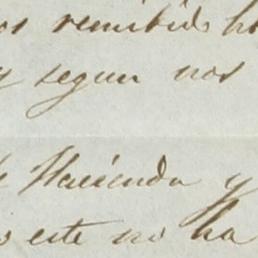 os remitido h
y segun nos
e Hacienda y
o este no ha